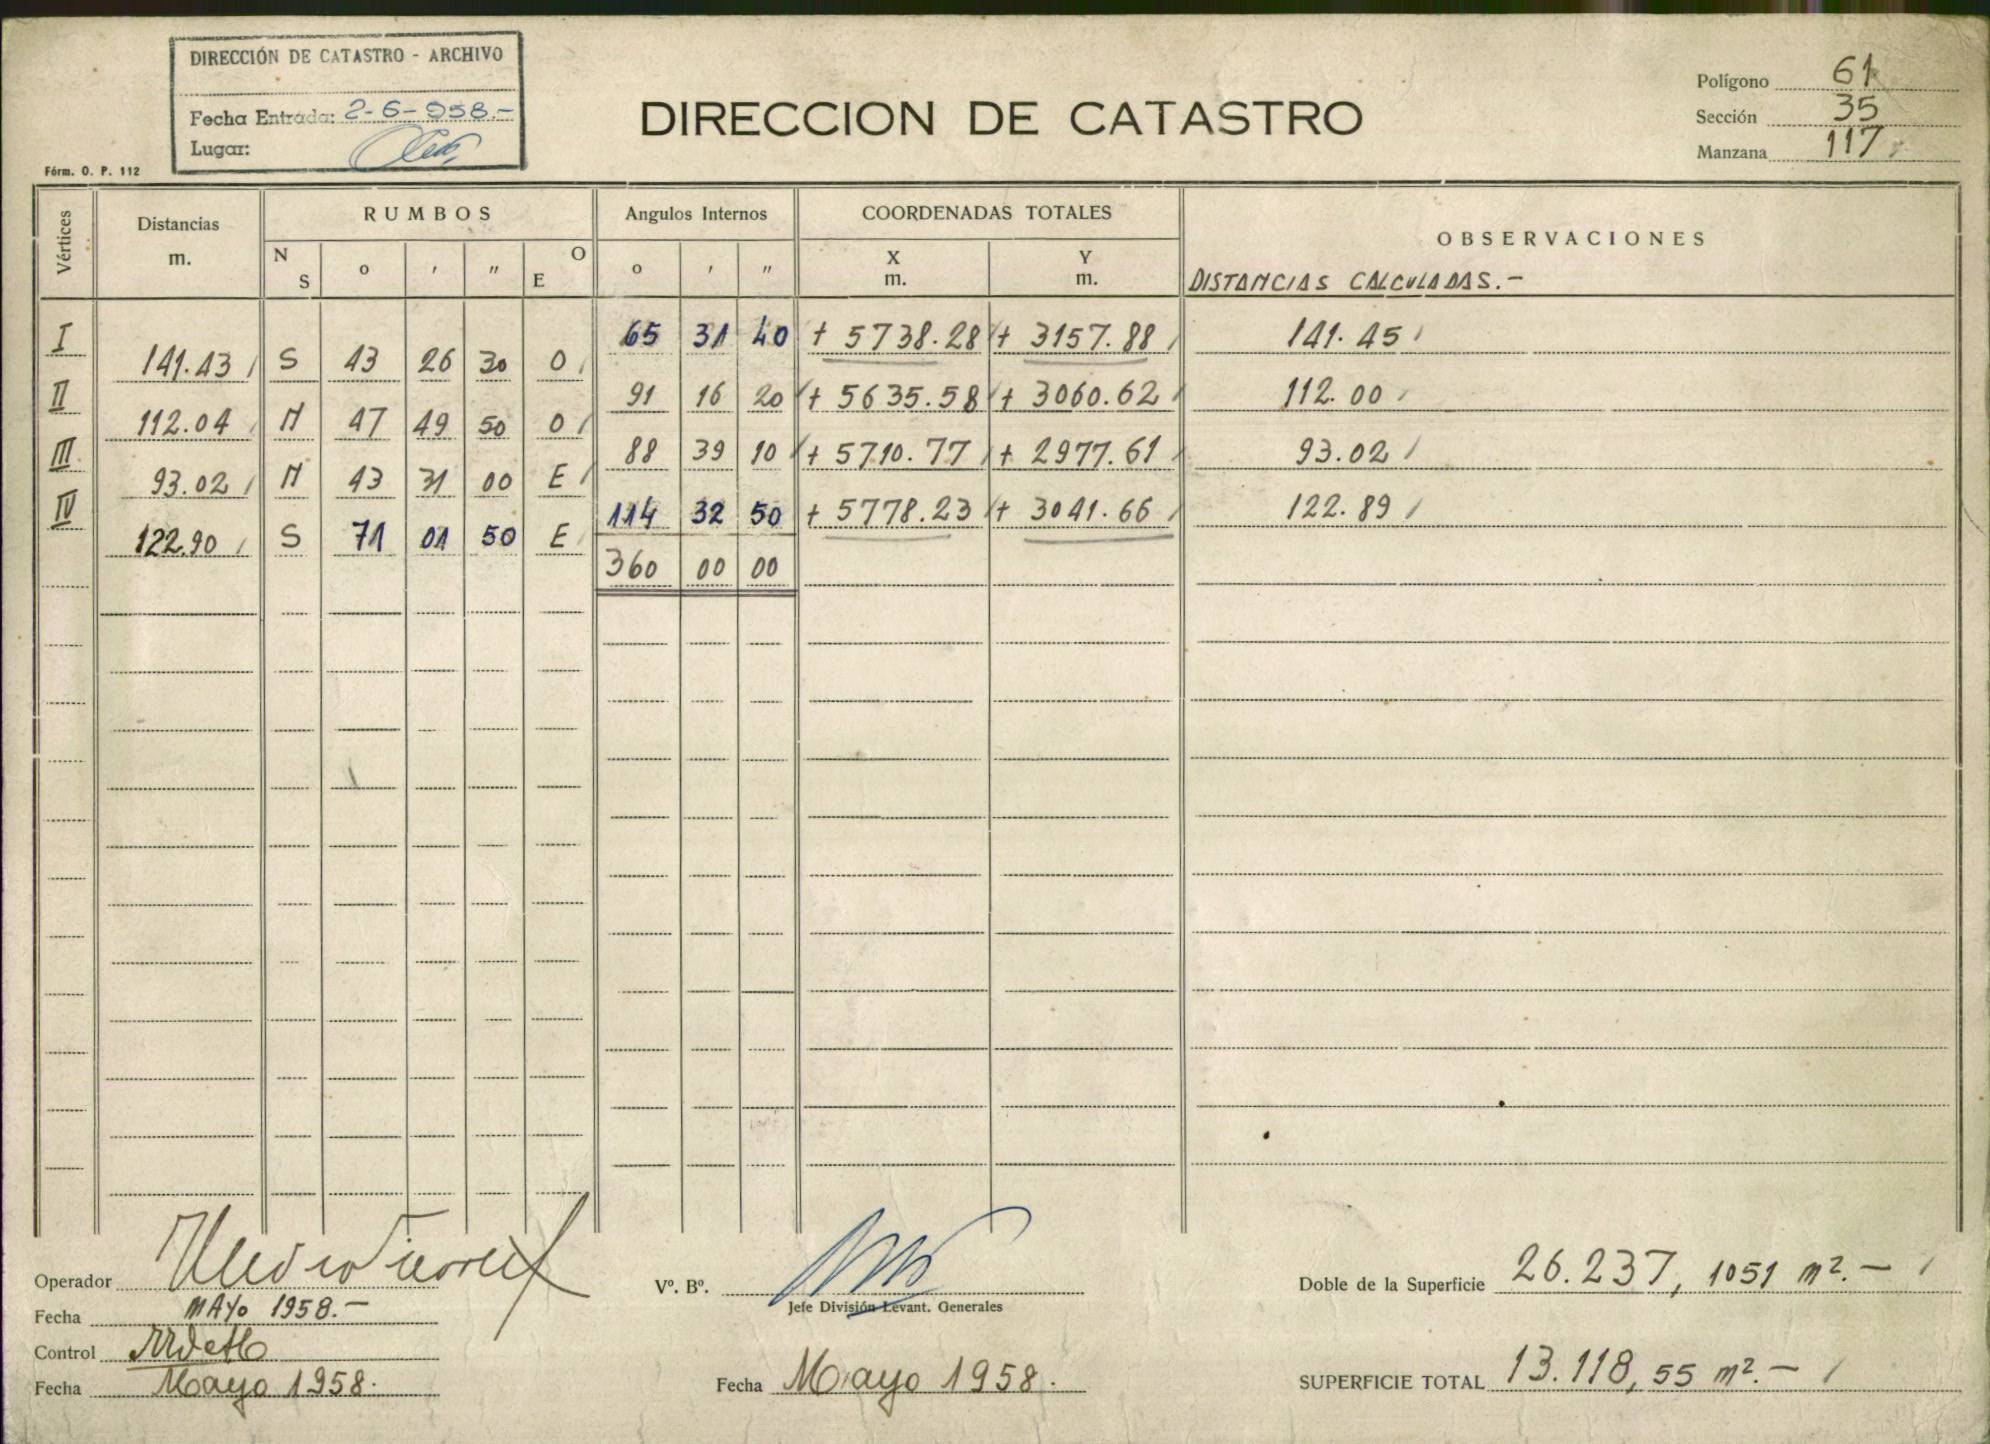 DIRECCIÓN DE CATASTRO - ARCHIVO
Fecha Entrada: 2-6-958.-
Lugar:
Fórm. O. P. 112
DIRECCION DE CATASTRO
Polígono 61
Sección 35
Manzana 117
Vértices Distancias m. RUMBOS Angulos Internos COORDENADAS TOTALES OBSERVACIONES
N S ° ' " O E ° ' " X m. Y m. DISTANCIAS CALCULADAS.-
I 65 31 40 + 5738.28 + 3157.88 141.45
141.43 S 43 26 30 O
II 91 16 20 + 5635.58 + 3060.62 112.00
112.04 N 47 49 50 O
III 88 39 10 + 5710.77 + 2977.61 93.02
93.02 N 43 31 00 E
IV 114 32 50 + 5778.23 + 3041.66 122.89
122.90 S 71 01 50 E
360 00 00
Operador
Fecha MAYO 1958.-
Control
Fecha Mayo 1958.
Vº. Bº.
Jefe División Levant. Generales
Fecha Mayo 1958.
Doble de la Superficie 26.237,1051 m².-
SUPERFICIE TOTAL 13.118,55 m².-